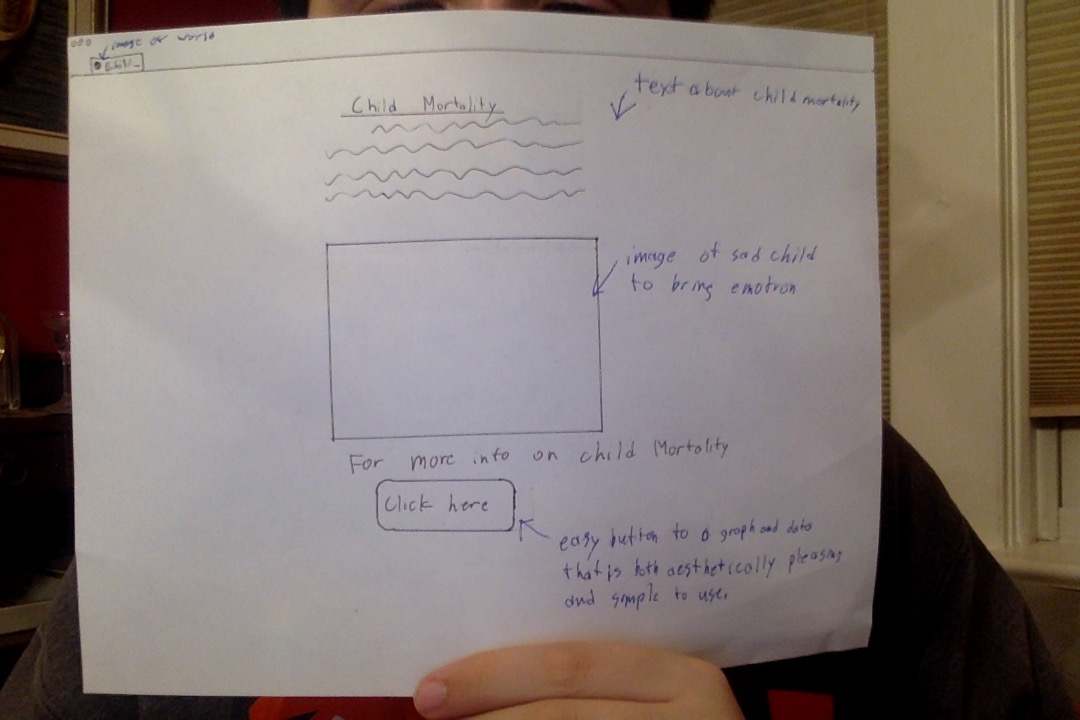 image of world
text about child mortality
Child Mortality
image of sad child
to bring emotion
For more info on child Mortality
Click here
easy button to a graph and data
that is both aesthetically pleasing
and simple to use.